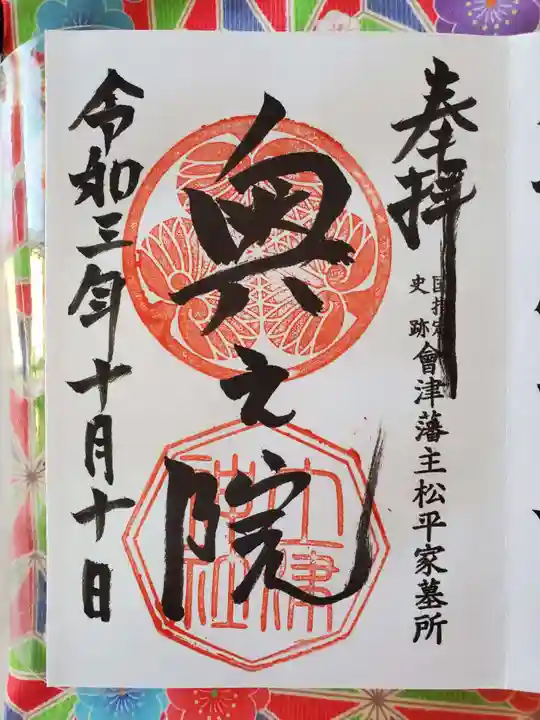 奉拝
国指定
史跡
會津藩主松平家墓所
奥之院
令和三年十月十日